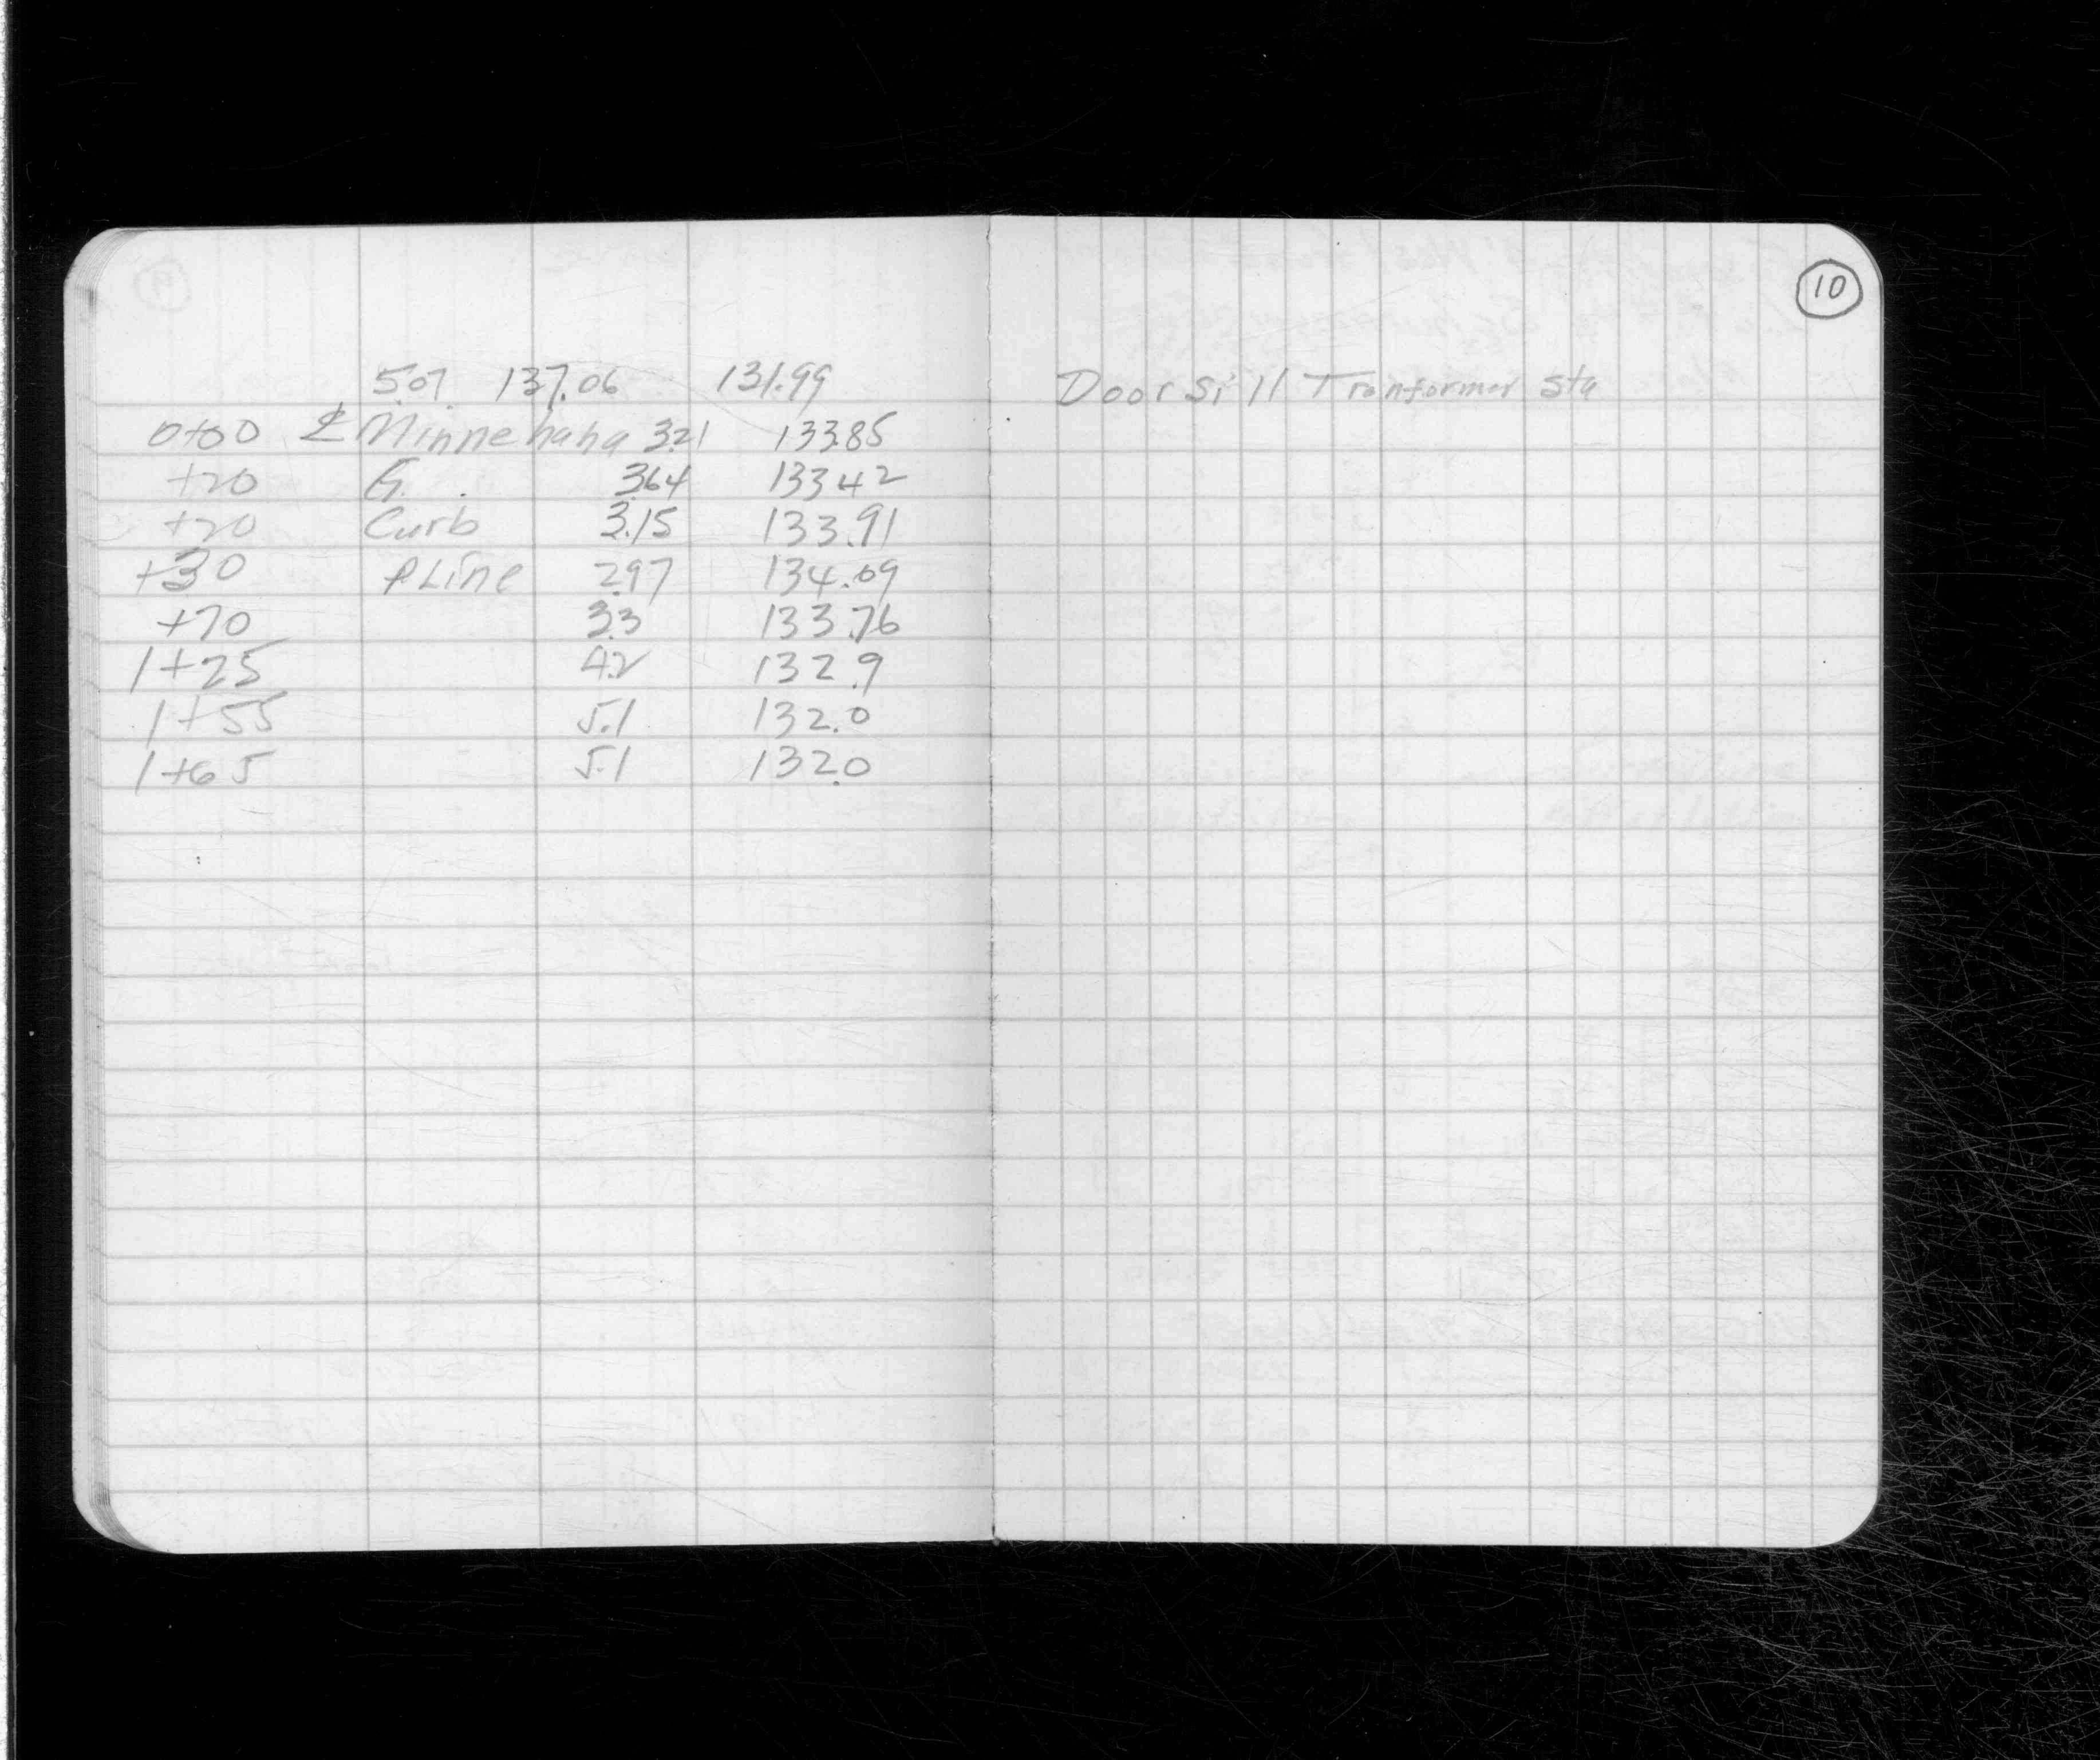 10
5.07 137.06 131.99 Door Sill Tranformer sta
0+00 ℄ Minnehaha 3.21 133.85
+20 G. 3.64 133.42
+20 Curb 3.15 133.91
+30 PLine 2.97 134.09
+70 3.3 133.76
1+25 4.2 132.9
1+55 5.1 132.0
1+65 5.1 132.0